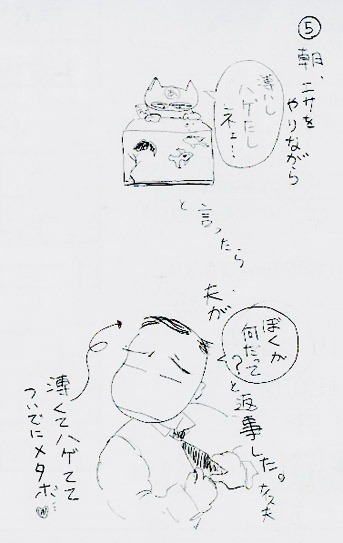 ⑤ 朝、エサを
やりながら
薄いし
ハゲだし
ネェ…
と言ったら
夫が
ぼくが
何だって
?
と返事した。
薄くてハゲてて
ついでにメタボ